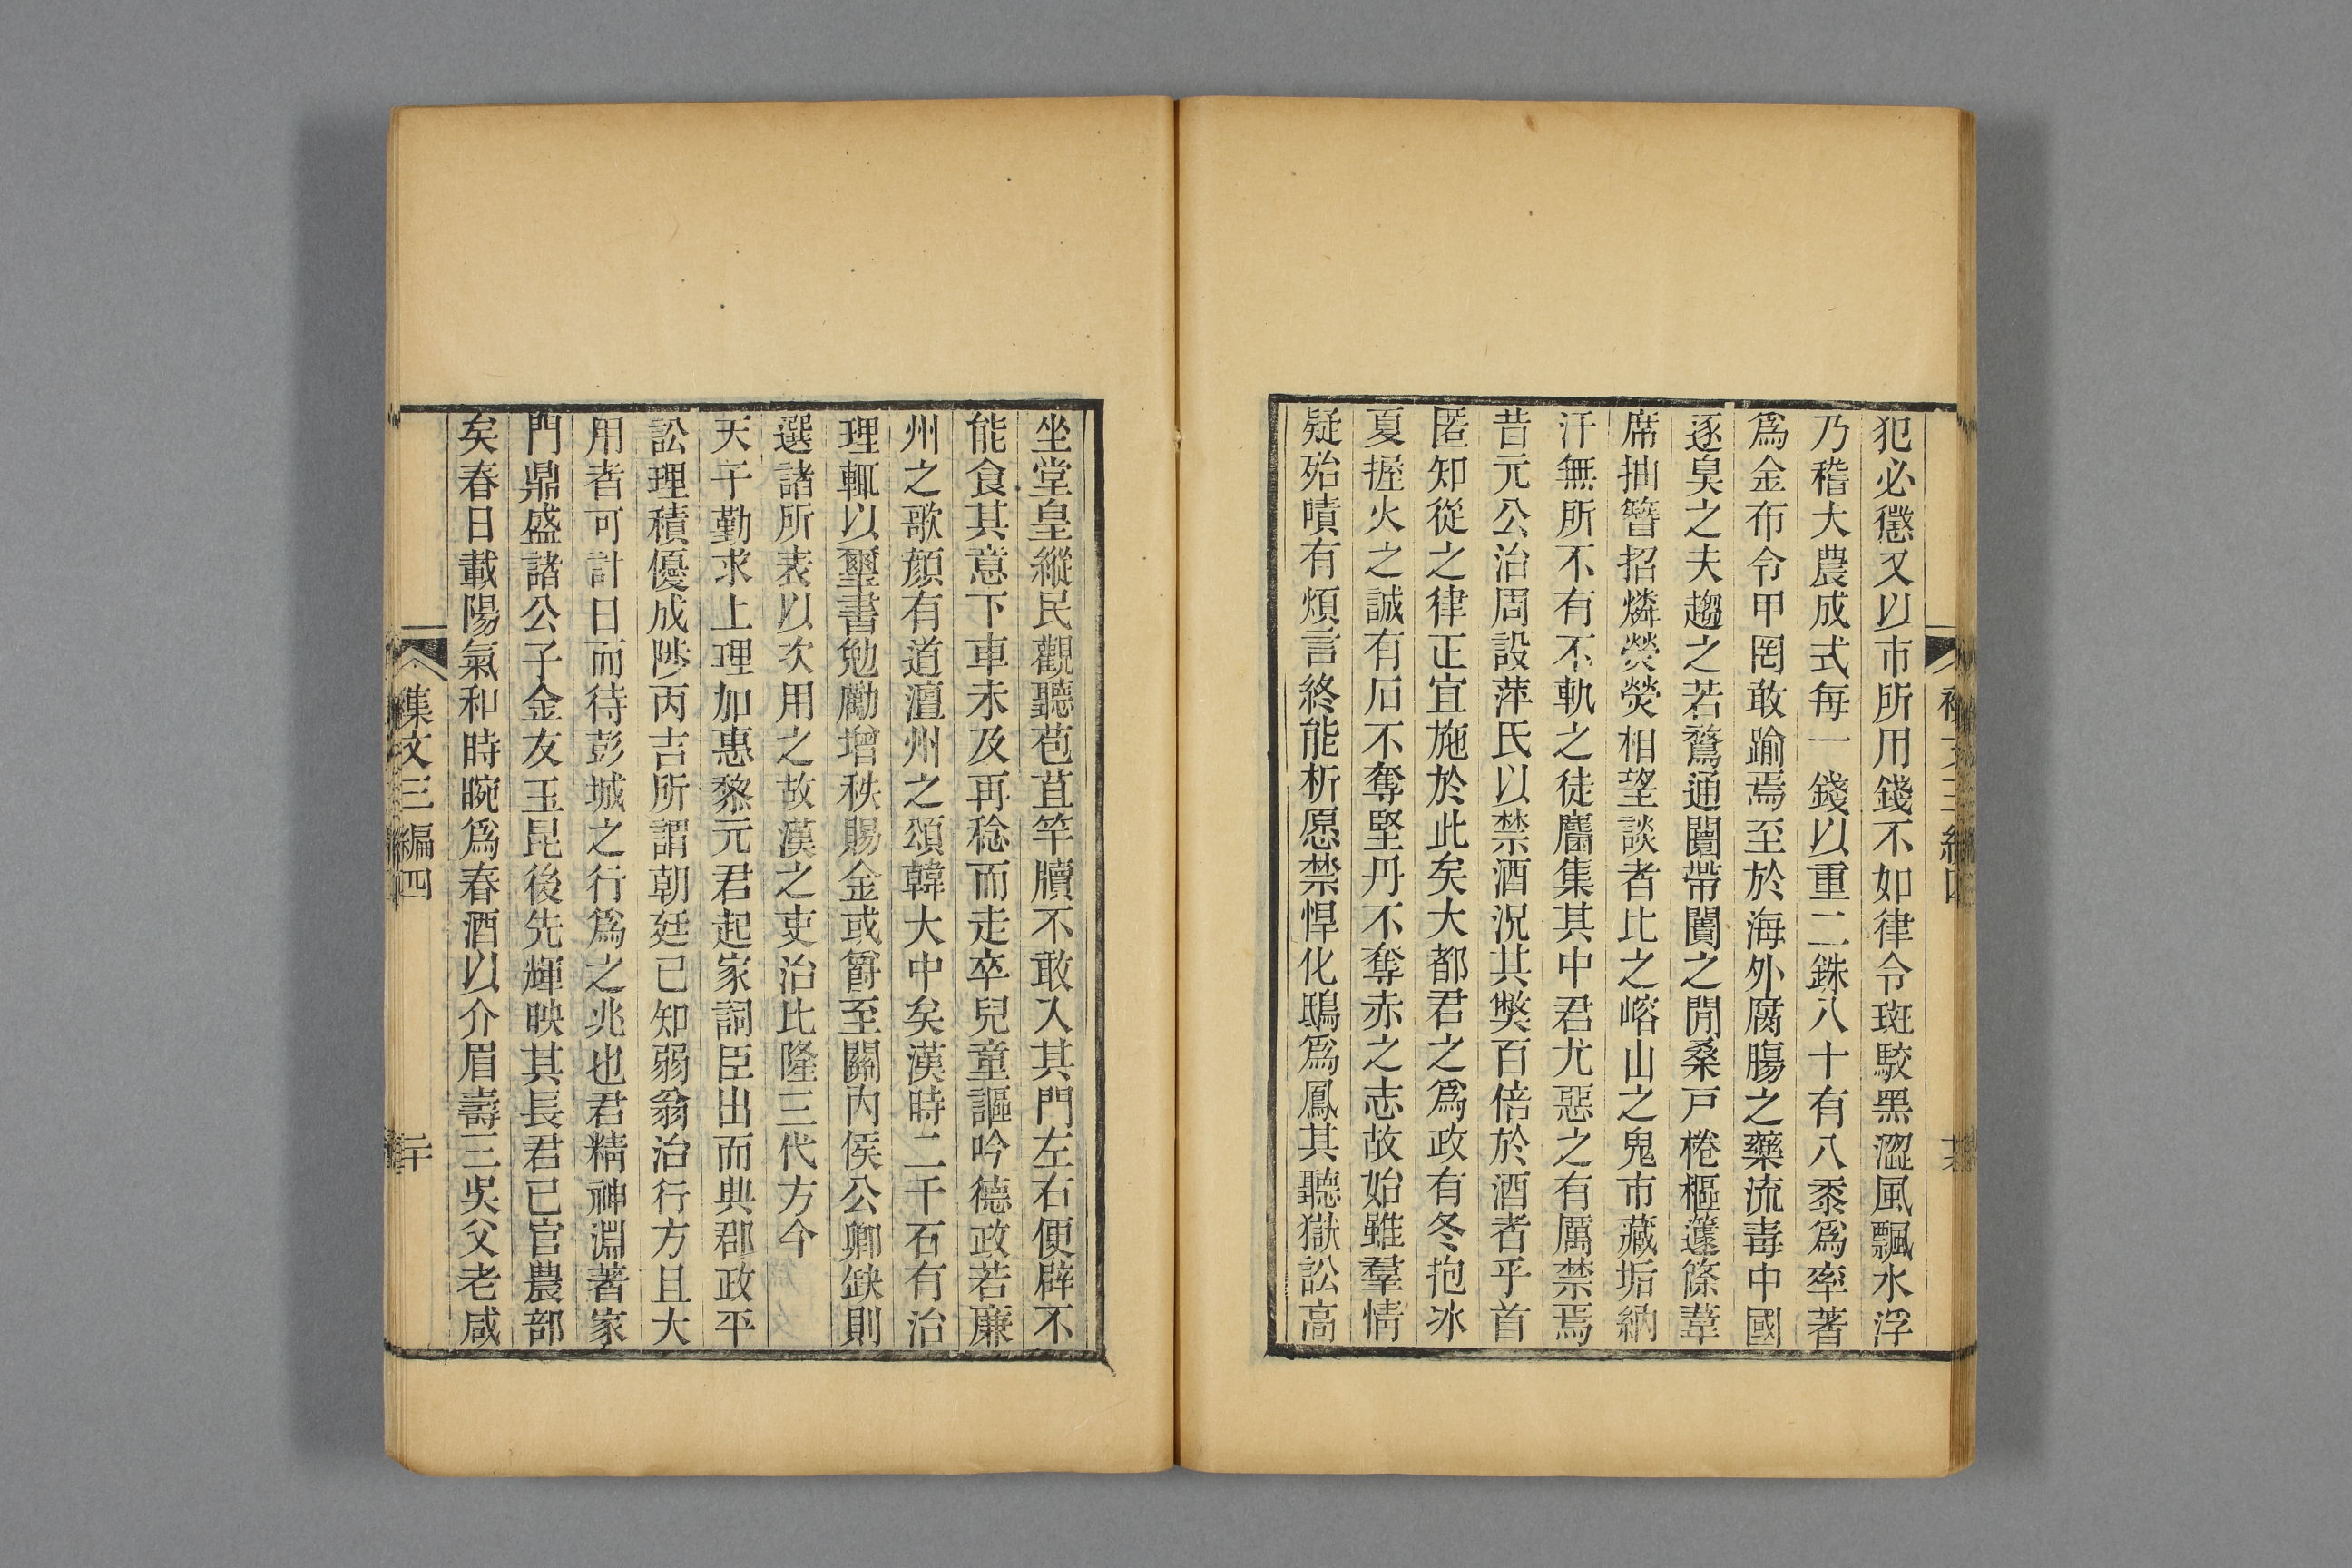 犯必懲又以市所用錢不如律令斑駮黑澀風飄水浮
乃稽大農成式每一錢以重二銖八十有八黍爲率著
爲金布令甲罔敢踰焉至於海外腐腸之藥流毒中國
逐臭之夫趨之若鶩通闤帶闠之閒桑戸棬樞籧篨葦
席抽簪招燐熒熒相望談者比之嵱山之鬼市藏垢納
汙無所不有不軌之徒麕集其中君尤惡之有厲禁焉
昔元公治周設萍氏以禁酒況其獘百倍於酒者乎首
匿知從之律正宜施於此矣大都君之爲政有冬抱冰
夏握火之誠有石不奪堅丹不奪赤之志故始雖羣情
疑殆嘖有煩言終能析愿禁悍化鴟爲鳳其聽獄訟高
坐堂皇縱民觀聽苞苴竿牘不敢入其門左右便辟不
能食其意下車未及再稔而走卒兒童謳吟德政若廉
州之歌顏有道澶州之頌韓大中矣漢時二千石有治
理輒以璽書勉勵增秩賜金或爵至關内侯公卿缺則
選諸所表以次用之故漢之吏治比隆三代方今
天子勤求上理加惠黎元君起家詞臣出而典郡政平
訟理積優成陟丙吉所謂朝廷已知弱翁治行方且大
用者可計日而待彭城之行爲之兆也君精神淵著家
門鼎盛諸公子金友玉昆後先輝映其長君已官農部
矣春日載陽氣和時晼爲春酒以介眉壽三吳父老咸
集文三編四
二十